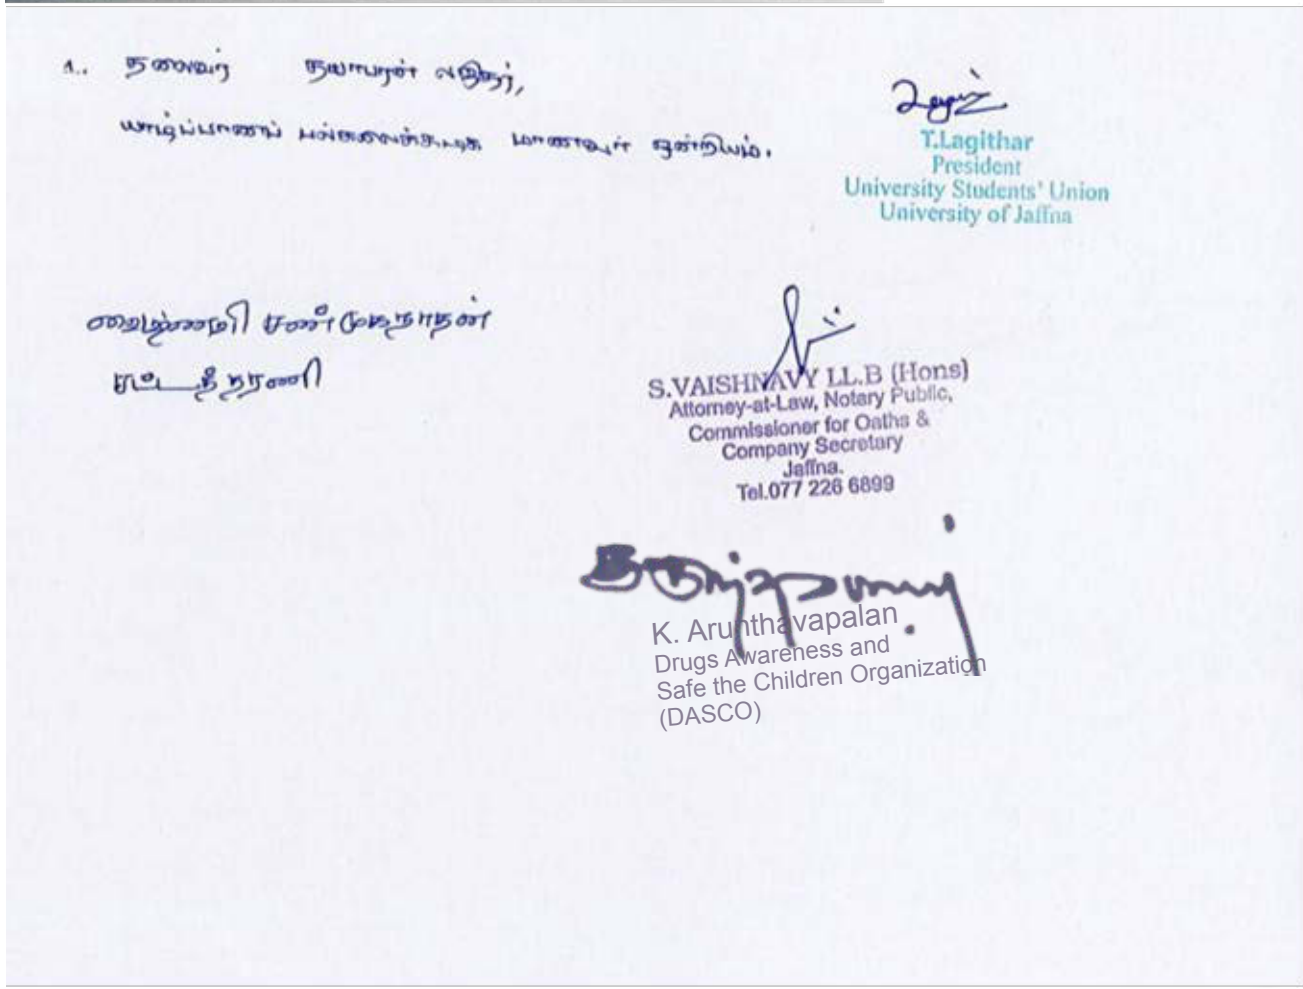 1.. தலைவர் தயாபரன் லகிதர்,
யாழ்ப்பாணப் பல்கலைக்கழக மாணவர் ஒன்றியம்.
T.Lagithar
President
University Students' Union
University of Jaffna
வைஷ்ணவி சண்முகநாதன்
சட்டத்தரணி
S.VAISHNAVY LL.B (Hons)
Attorney-at-Law, Notary Public,
Commissioner for Oaths &
Company Secretary
Jaffna.
Tel.077 226 6899
K. Arunthavapalan
Drugs Awareness and
Safe the Children Organization
(DASCO)